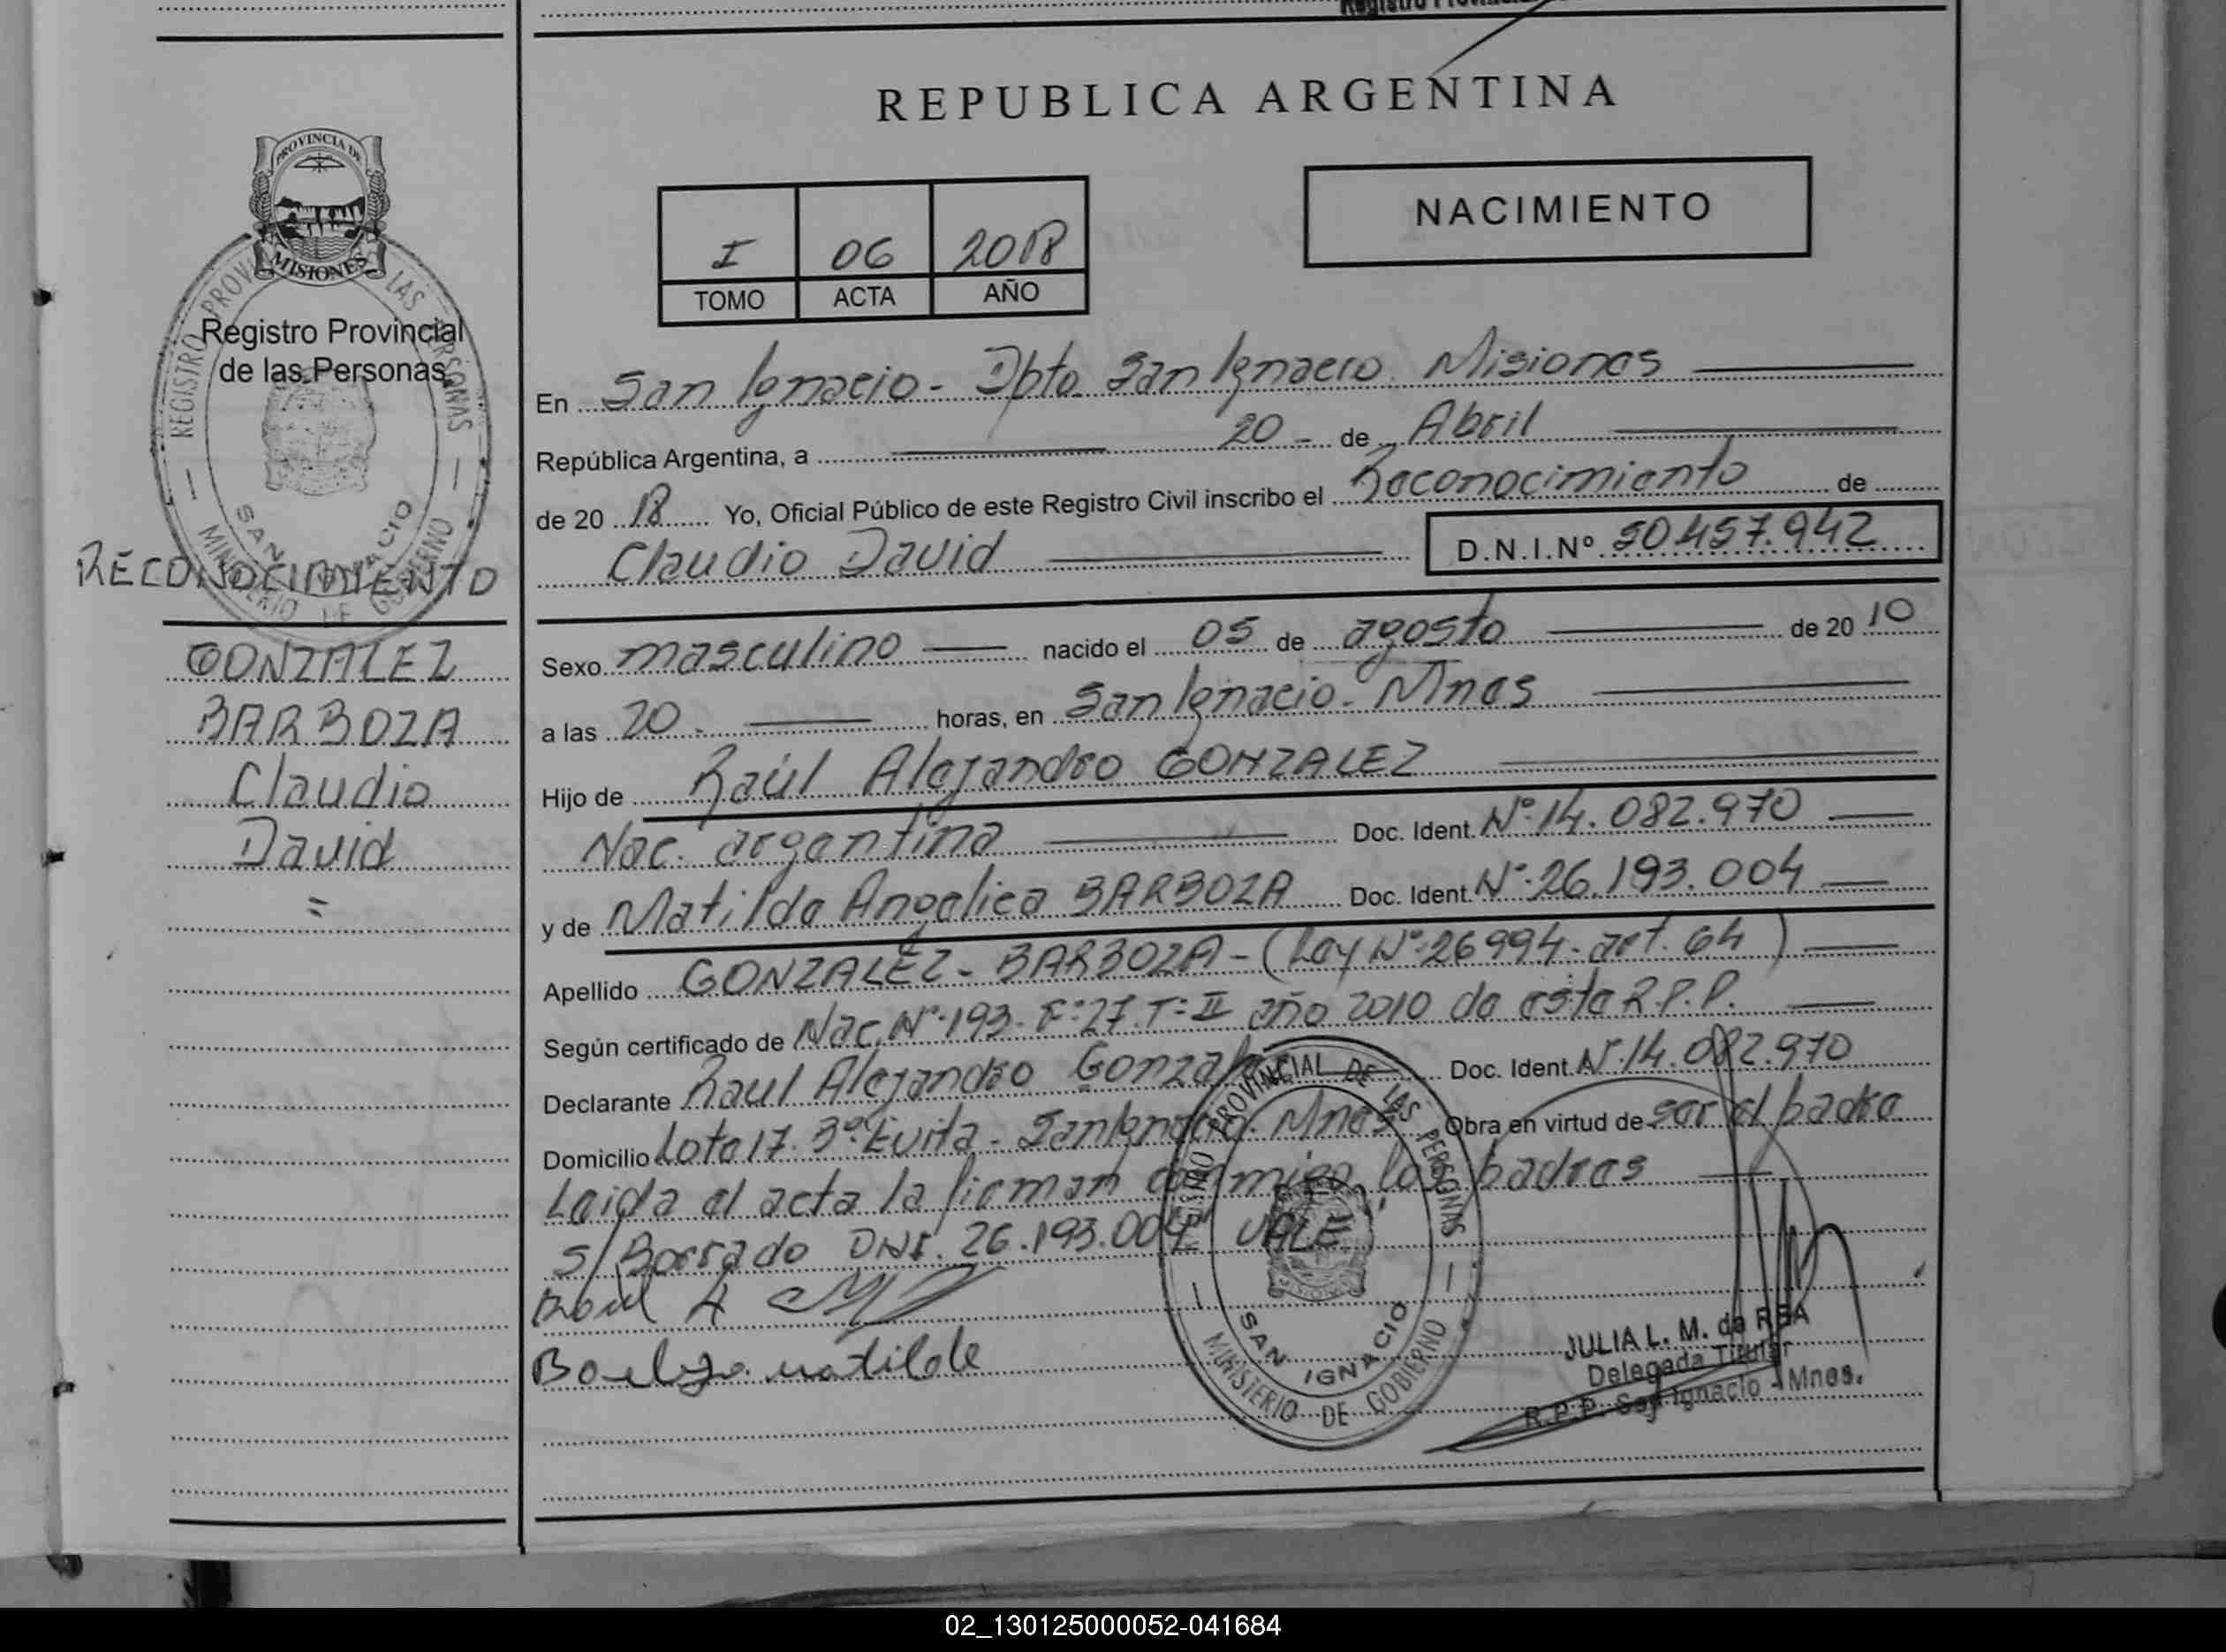 Registro Provincial
REPUBLICA ARGENTINA
PROVINCIA DE
MISIONES
NACIMIENTO
I 06 2018
TOMO ACTA AÑO
Registro Provincial
de las Personas
REGISTRO PROVINCIAL DE LAS PERSONAS
SAN IGNACIO
MINISTERIO DE GOBIERNO
RECONOCIMIENTO
GONZALEZ
BARBOZA
Claudio
David
=
En San Ignacio - Dpto San Ignacio. Misiones
República Argentina, a 20 - de Abril
de 20 18 Yo, Oficial Público de este Registro Civil inscribo el Reconocimiento de
Claudio David D.N.I.Nº 50.457.942
Sexo masculino nacido el 05 de agosto de 20 10
a las 20 - horas, en San Ignacio - Mnes
Hijo de Raúl Alejandro GONZALEZ
Nac. argentina Doc. Ident. Nº 14.082.970
y de Matilde Angelica BARBOZA Doc. Ident. Nº 26.193.004
Apellido GONZALEZ - BARBOZA - (Ley Nº 26994 - art. 64)
Según certificado de Nac. Nº 193. Fº 27. Tº II año 2010 de este R.P.P.
Declarante Raul Alejandro Gonzalez Doc. Ident. Nº 14.082.970
Domicilio Lote 17. Bº Evita - San Ignacio. Mnes Obra en virtud de ser el padre
Leida el acta la firman conmigo los padres
S/Borrado DNI. 26.193.004 "VALE"
Raul A
Barboza matilde
PROVINCIAL DE LAS PERSONAS
SAN IGNACIO
MINISTERIO DE GOBIERNO
JULIA L. M. de REA
Delegada Titular
R.P.P. San Ignacio - Mnes.
02_130125000052-041684